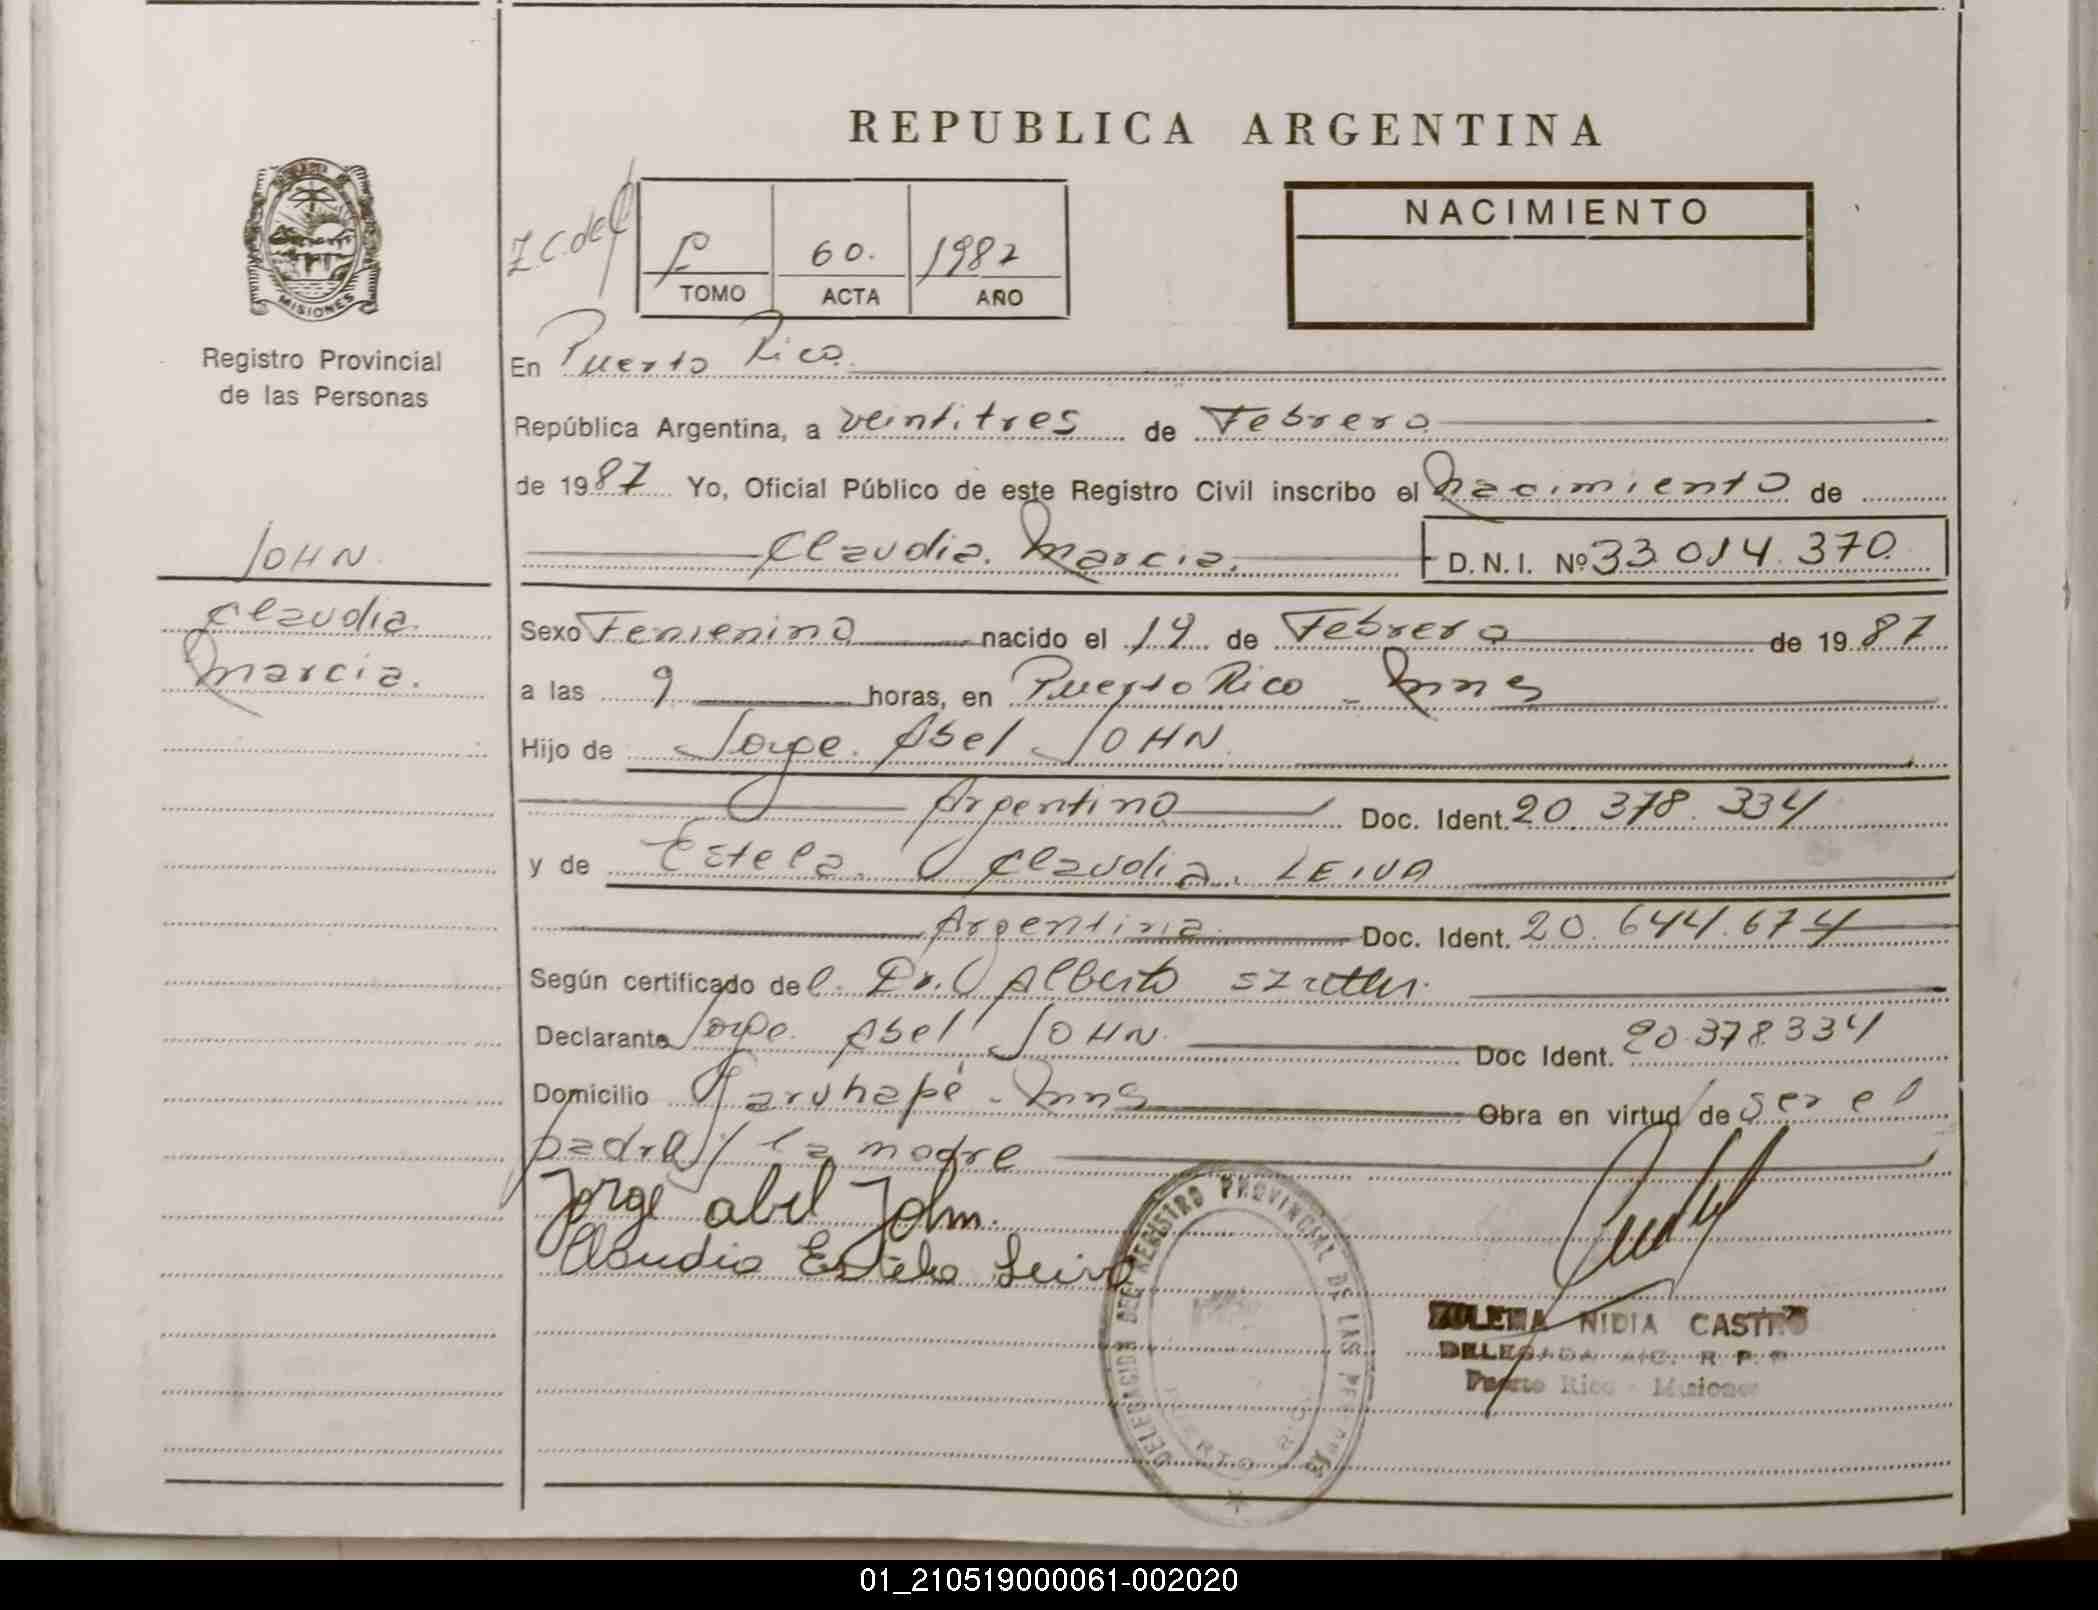 REPUBLICA ARGENTINA
MISIONES
Registro Provincial
de las Personas
60. 1987
TOMO ACTA AÑO
NACIMIENTO
En Puerto Rico.
República Argentina, a veintitres de Febrero
de 1987 Yo, Oficial Público de este Registro Civil inscribo el Nacimiento de
Claudia. Marcia. D.N.I. Nº 33.014.370
JOHN.
Claudia.
Marcia.
Sexo Femenino nacido el 19 de Febrero de 1987
a las 9 horas, en Puerto Rico - Mnes
Hijo de Jorge. Abel JOHN.
Argentino Doc. Ident. 20.378.334
y de Estela. Claudia. LEIVA
Argentina Doc. Ident. 20.644.674
Según certificado del Dr. Alberto
Declarante Jorge. Abel JOHN. Doc Ident. 20.378334
Domicilio Garuhapé - Mnes Obra en virtud de ser el
padre y la madre
Jorge abel John.
Claudia Estela Leiva
DELEGACION DEL REGISTRO PROVINCIAL DE LAS PERSONAS
PUERTO RICO
ZULEMA NIDIA CASTRO
DELEGADA R. P. P.
Puerto Rico - Misiones
01_210519000061-002020